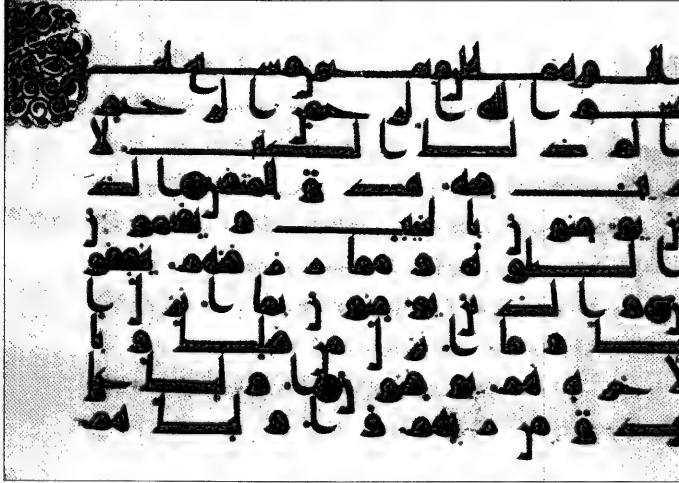 بسم الله الرحمن الرحيم
الم ذلك الكتب لا
ريب فيه هدى للمتقين الذ
ين يؤمنون بالغيب ويقيمون
الصلوة ومما رزقنهم ينفقو
ن والذين يؤمنون بما انزل
اليك وما انزل من قبلك وبا
لاخرة هم يوقنون اولئك علـ
ـى هدى من ربهم واولئك هم